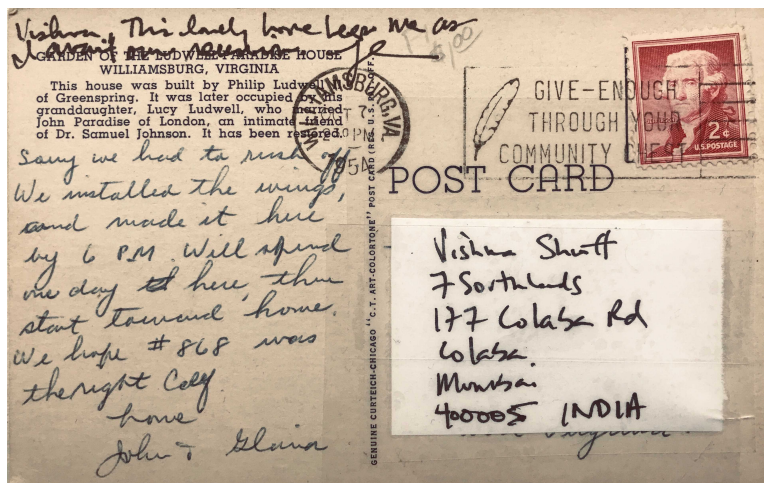 Vishwa, This lovely home keeps me as
I await our reunion
$1.00
GARDEN OF THE LUDWELL-PARADISE HOUSE
WILLIAMSBURG, VIRGINIA
This house was built by Philip Ludwell
of Greenspring. It was later occupied by his
granddaughter, Lucy Ludwell, who married
John Paradise of London, an intimate friend
of Dr. Samuel Johnson. It has been restored.
Sorry we had to rush off
We installed the wings,
and made it here
by 6 P.M. Will spend
one day here, then
start toward home.
We hope #868 was
the right
Love
John &
GENUINE CURTEICH-CHICAGO "C.T. ART-COLORTONE" POST CARD (REG. U.S. PAT. OFF.)
WILLIAMSBURG, VA.
PM
1954
GIVE-ENOUGH
THROUGH YOUR
COMMUNITY CHEST
2¢
U.S. POSTAGE
POST CARD
Vishwa Shroff
7 Southlands
177 Colaba Rd
Colaba
Mumbai
400005 INDIA